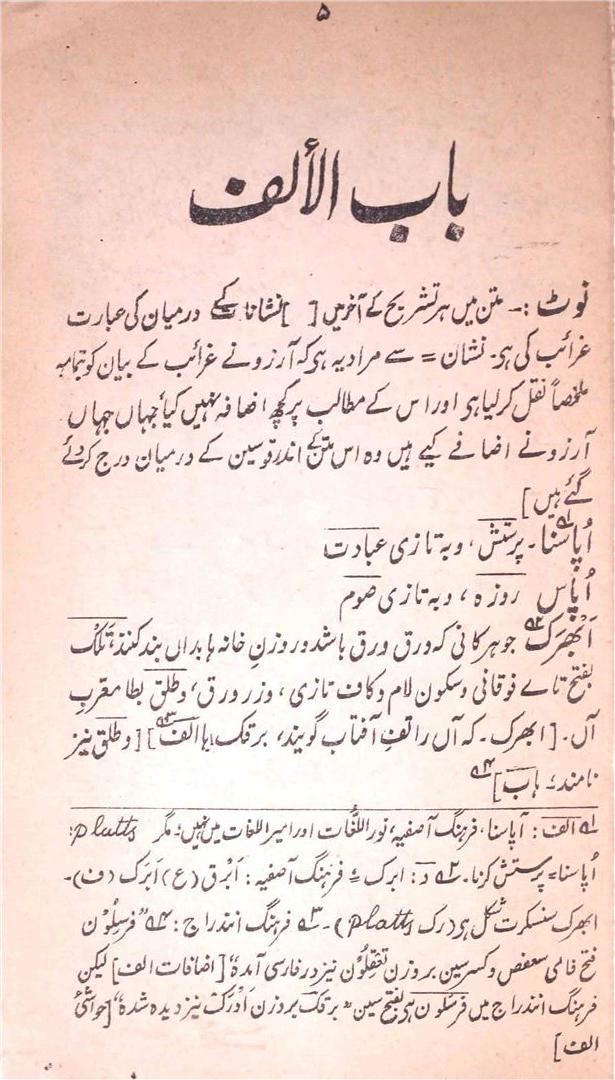 ۵
باب الألف
نوٹ :۔ متن میں ہر تشریح کے آخر میں [ ] نشانات کے درمیان کی عبارت
غرائب کی ہی۔ نشان = سے مراد یہ ہی کہ آرزو نے غرائب کے بیان کو بتمامہ
ملخصاً نقل کر لیا ہی اور اس کے مطالب پر کچھ اضافہ نہیں کیا، جہاں جہاں
آرزو نے اضافے کیے ہیں وہ اس متن کے اندر قوسین کے درمیان درج کر دئے
گئے ہیں]
اُپاسنا۔ پرستش، و بہ تازی عبادت
اُپاس روزہ، و بہ تازی صوم
اَبھرَک جوہر کانی کہ ورق ورق باشد و روزنِ خانہ ہا بداں بند کنند، تَلک
بفتح تاے فوقانی و سکون لام و کاف تازی، و زر ورق، و طلق بطا معربِ
آں۔ [ ابھرک۔ کہ آں را تفِ آفتاب گویند، برقک ہا الف] [و طلق نیز
نامند: ہاب]
۱؎ الف: آپاسنا، فرہنگ آصفیہ، نور اللّغات اور امیر اللغات میں نہیں؛ مگر platts:
اُپاسنا= پرستش کرنا۔ ۲؎ د: ابرک = فرہنگ آصفیہ: اَبرَق (ع) اَبَرک (ف)۔
ابھرک سنسکرت شکل ہی (رک platts)۔ ۳؎ فرہنگ انندراج: ۴؎ "فرسلون
فتح فاے سعفص و کسر سین بر وزن نیز در فارسی آمدہ" [اضافات الف] لیکن
فرہنگ انندراج میں فرسلون ہی بفتح سین "برقک بر وزن اَدرَک نیز دیدہ شدہ" [حواشیٔ
الف]